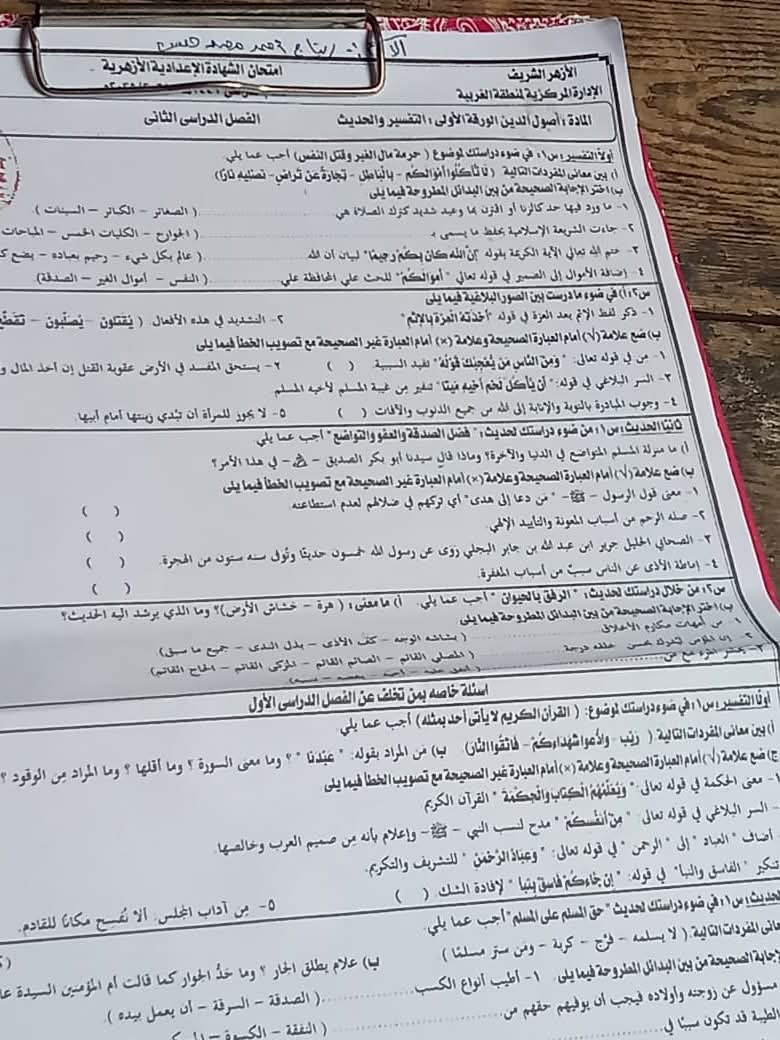 الأزهر الشريف
امتحان الشهادة الإعدادية الأزهرية
الإدارة المركزية لمنطقة الغربية
المادة : أصول الدين الورقة الأولى : التفسير والحديث
الفصل الدراسى الثانى
أولاً التفسير: س١: في ضوء دراستك لموضوع ( حرمة مال الغير وقتل النفس) أجب عما يلي.
أ) بين معانى المفردات التالية ( لَا تَأْكُلُوا أَمْوَالَكُمْ - بِالْبَاطِلِ - تِجَارَةً عَن تَرَاضٍ - نُصْلِيهِ نَارًا)
ب) اختر الإجابة الصحيحة من بين البدائل المطروحة فيما يلى
١- ما ورد فيها حد كالزنا أو اقترن بها وعيد شديد كترك الصلاة هي ............ ( الصغائر – الكبائر – السيئات ).
٢- جاءت الشريعة الإسلامية بحفظ ما يسمى بـ ............ ( الجوارح - الكليات الخمس - المباحات
٣- ختم الله تعالى الآية الكريمة بقوله "إِنَّ اللَّهَ كَانَ بِكُمْ رَحِيمًا" لبيان أن الله ............ ( عالم بكل شيء - رحيم بعباده - يضع
٤- إضافة الأموال إلى الضمير في قوله تعالى "أَمْوَالَكُمْ" للحث على المحافظة على ............ (النفس – أموال الغير – الصدقة).
س٢: أ) في ضوء ما درست بين الصور البلاغية فيما يلى
١- ذكر لفظ الإثم بعد العزة في قوله "أَخَذَتْهُ الْعِزَّةُ بِالْإِثْمِ" ٢- التشديد في هذه الأفعال ( يُقَتَّلُونَ - يُصَلَّبُونَ -
ب) ضع علامة (√) أمام العبارة الصحيحة وعلامة (×) أمام العبارة غير الصحيحة مع تصويب الخطأ فيما يلى
١- من في قوله تعالى: "وَمِنَ النَّاسِ مَن يُعْجِبُكَ قَوْلُهُ" تفيد السببية. ( ) ٢- يستحق المفسد في الأرض عقوبة القتل إن أخذ المال و
٣- السر البلاغي في قوله: "أَن يَأْكُلَ لَحْمَ أَخِيهِ مَيْتًا" تنفير من غيبة المسلم لأخيه المسلم
٤- وجوب المبادرة بالتوبة والإنابة إلى الله من جميع الذنوب والآفات ( ) ٥- لا يجوز للمرأة أن تبدي زينتها أمام أبيها.
ثانيًا الحديث: س١: من ضوء دراستك لحديث: " فضل الصدقة والعفو والتواضع" أجب عما يلي
أ) ما منزلة المسلم المتواضع في الدنيا والآخرة؟ وماذا قال سيدنا أبو بكر الصديق - - في هذا الأمر؟
ب) ضع علامة (√) أمام العبارة الصحيحة وعلامة (×) أمام العبارة غير الصحيحة مع تصويب الخطأ فيما يلى
١- معنى قول الرسول – ﷺ – "من دعا إلى هدى" أي تركهم في ضلالهم لعدم استطاعته. ( )
٢- صلة الرحم من أسباب المعونة والتأييد الإلهي. ( )
٣- الصحابي الجليل جرير ابن عبد الله بن جابر البجلي روى عن رسول الله خمسون حديثًا وتُوفي سنه ستون من الهجرة. ( )
٤- إماطة الأذى عن الناس سببٌ من أسباب المغفرة. ( )
س٢: من خلال دراستك لحديث: " الرفق بالحيوان " أجب عما يلي. أ) ما معنى : ( هرة - خشاش الأرض)؟ وما الذي يرشد اليه الحديث؟
ب) اختر الإجابة الصحيحة من بين البدائل المطروحة فيما يلى
١- من أمهات مكارم الأخلاق ............ ( بشاشه الوجه – كف الأذى – بذل الندى – جميع ما سبق)
٢- إن المؤمن ليدرك بحسن خلقه درجة ............ ( المصلى القائم – الصائم القائم – المزكى القائم – الحاج القائم)
اسئلة خاصه بمن تخلف عن الفصل الدراسى الأول
أولًا التفسير: س١: في ضوء دراستك لموضوع: ( القرآن الكريم لا يأتى أحد بمثله) أجب عما يلي
أ) بين معانى المفردات التالية ( رَيْبٍ - وَادْعُوا شُهَدَاءَكُمْ - فَاتَّقُوا النَّارَ) ب) مَن المراد بقوله: "عَبْدِنَا "؟ وما معنى السورة ؟ وما أقلها ؟ وما المراد مِن الوقود ؟
ج) ضع علامة (√) أمام العبارة الصحيحة وعلامة (×) أمام العبارة غير الصحيحة مع تصويب الخطأ فيما يلى
١- معنى الحكمة في قوله تعالى: "وَيُعَلِّمُهُمُ الْكِتَابَ وَالْحِكْمَةَ " القرآن الكريم
- السر البلاغي في قوله تعالى: " مِنْ أَنفُسِكُمْ " مدح لنسب النبي – ﷺ – وإعلام بأنه مِن صميم العرب وخالصها.
أضاف "العباد" إلى "الرحمن" في قوله تعالى: "وَعِبَادُ الرَّحْمَنِ" للتشريف والتكريم.
تنكير "الفاسق والنبأ" في قوله: "إِن جَاءَكُمْ فَاسِقٌ بِنَبَإٍ" لإفادة الشك ( ) ٥- مِن آداب المجلس: ألا نُفسح مكانًا للقادم.
الحديث: س١: في ضوء دراستك لحديث "حق المسلم على المسلم" أجب عما يلي.
معانى المفردات التالية: ( لا يسلمه – فرّج – كربة – ومن ستر مسلمًا ) ب) علام يطلق الجار ؟ وما حَدُّ الجوار كما قالت أم المؤمنين السيدة
الإجابة الصحيحة من بين البدائل المطروحة فيما يلى ١- أطيب أنواع الكسب ............ ( الصدقة – السرقة – أن يعمل بيده )
مسؤول عن زوجته وأولاده فيجب أن يوفيهم حقهم من ............ ( النفقة – الكسوة –
الطيبة قد تكون سببًا في ............